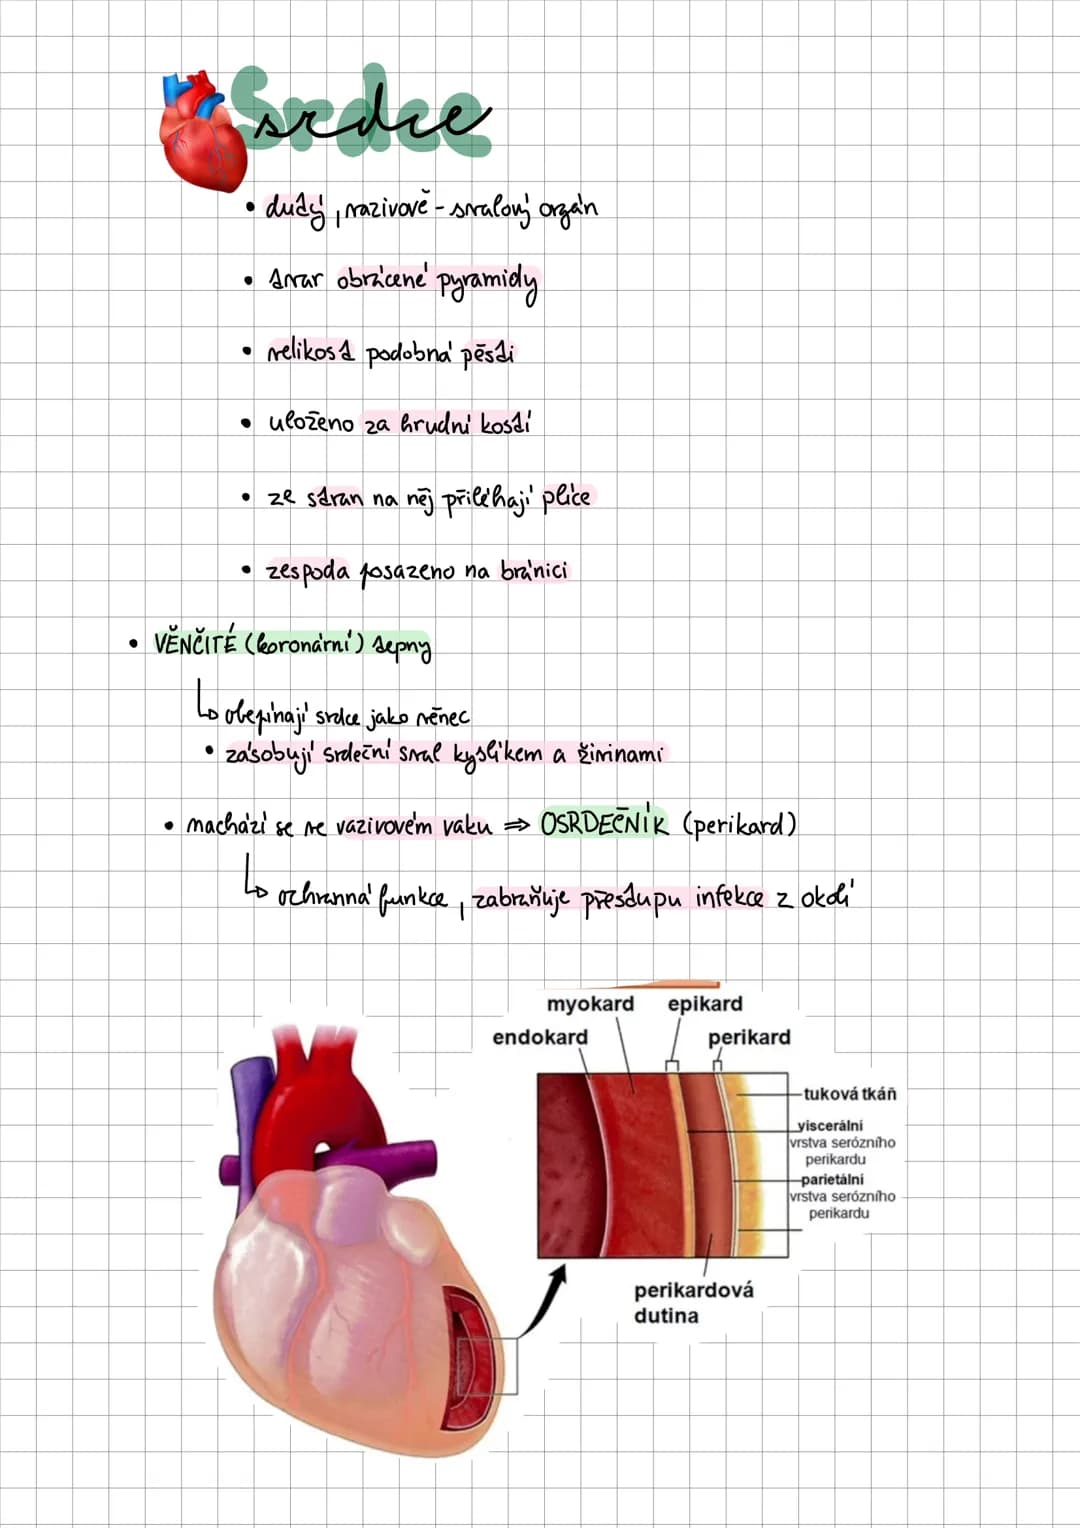 srdce
• dutý, vazivově - svalový orgán
• tvar obrácené pyramidy
• velikost podobná pěsti
• uloženo za hrudní kostí
• ze stran na něj přiléhají plíce
• zespoda posazeno na bránici
• VĚNČITÉ (koronární) tepny
↳ obepínají srdce jako věnec
• zásobují srdeční sval kyslíkem a živinami
• nachází se ve vazivovém vaku ⇒ OSRDEČNÍK (perikard)
↳ ochranná funkce, zabraňuje přestupu infekce z okolí
myokard epikard
endokard perikard
tuková tkáň
viscerální
vrstva serózního
perikardu
parietální
vrstva serózního
perikardu
perikardová
dutina